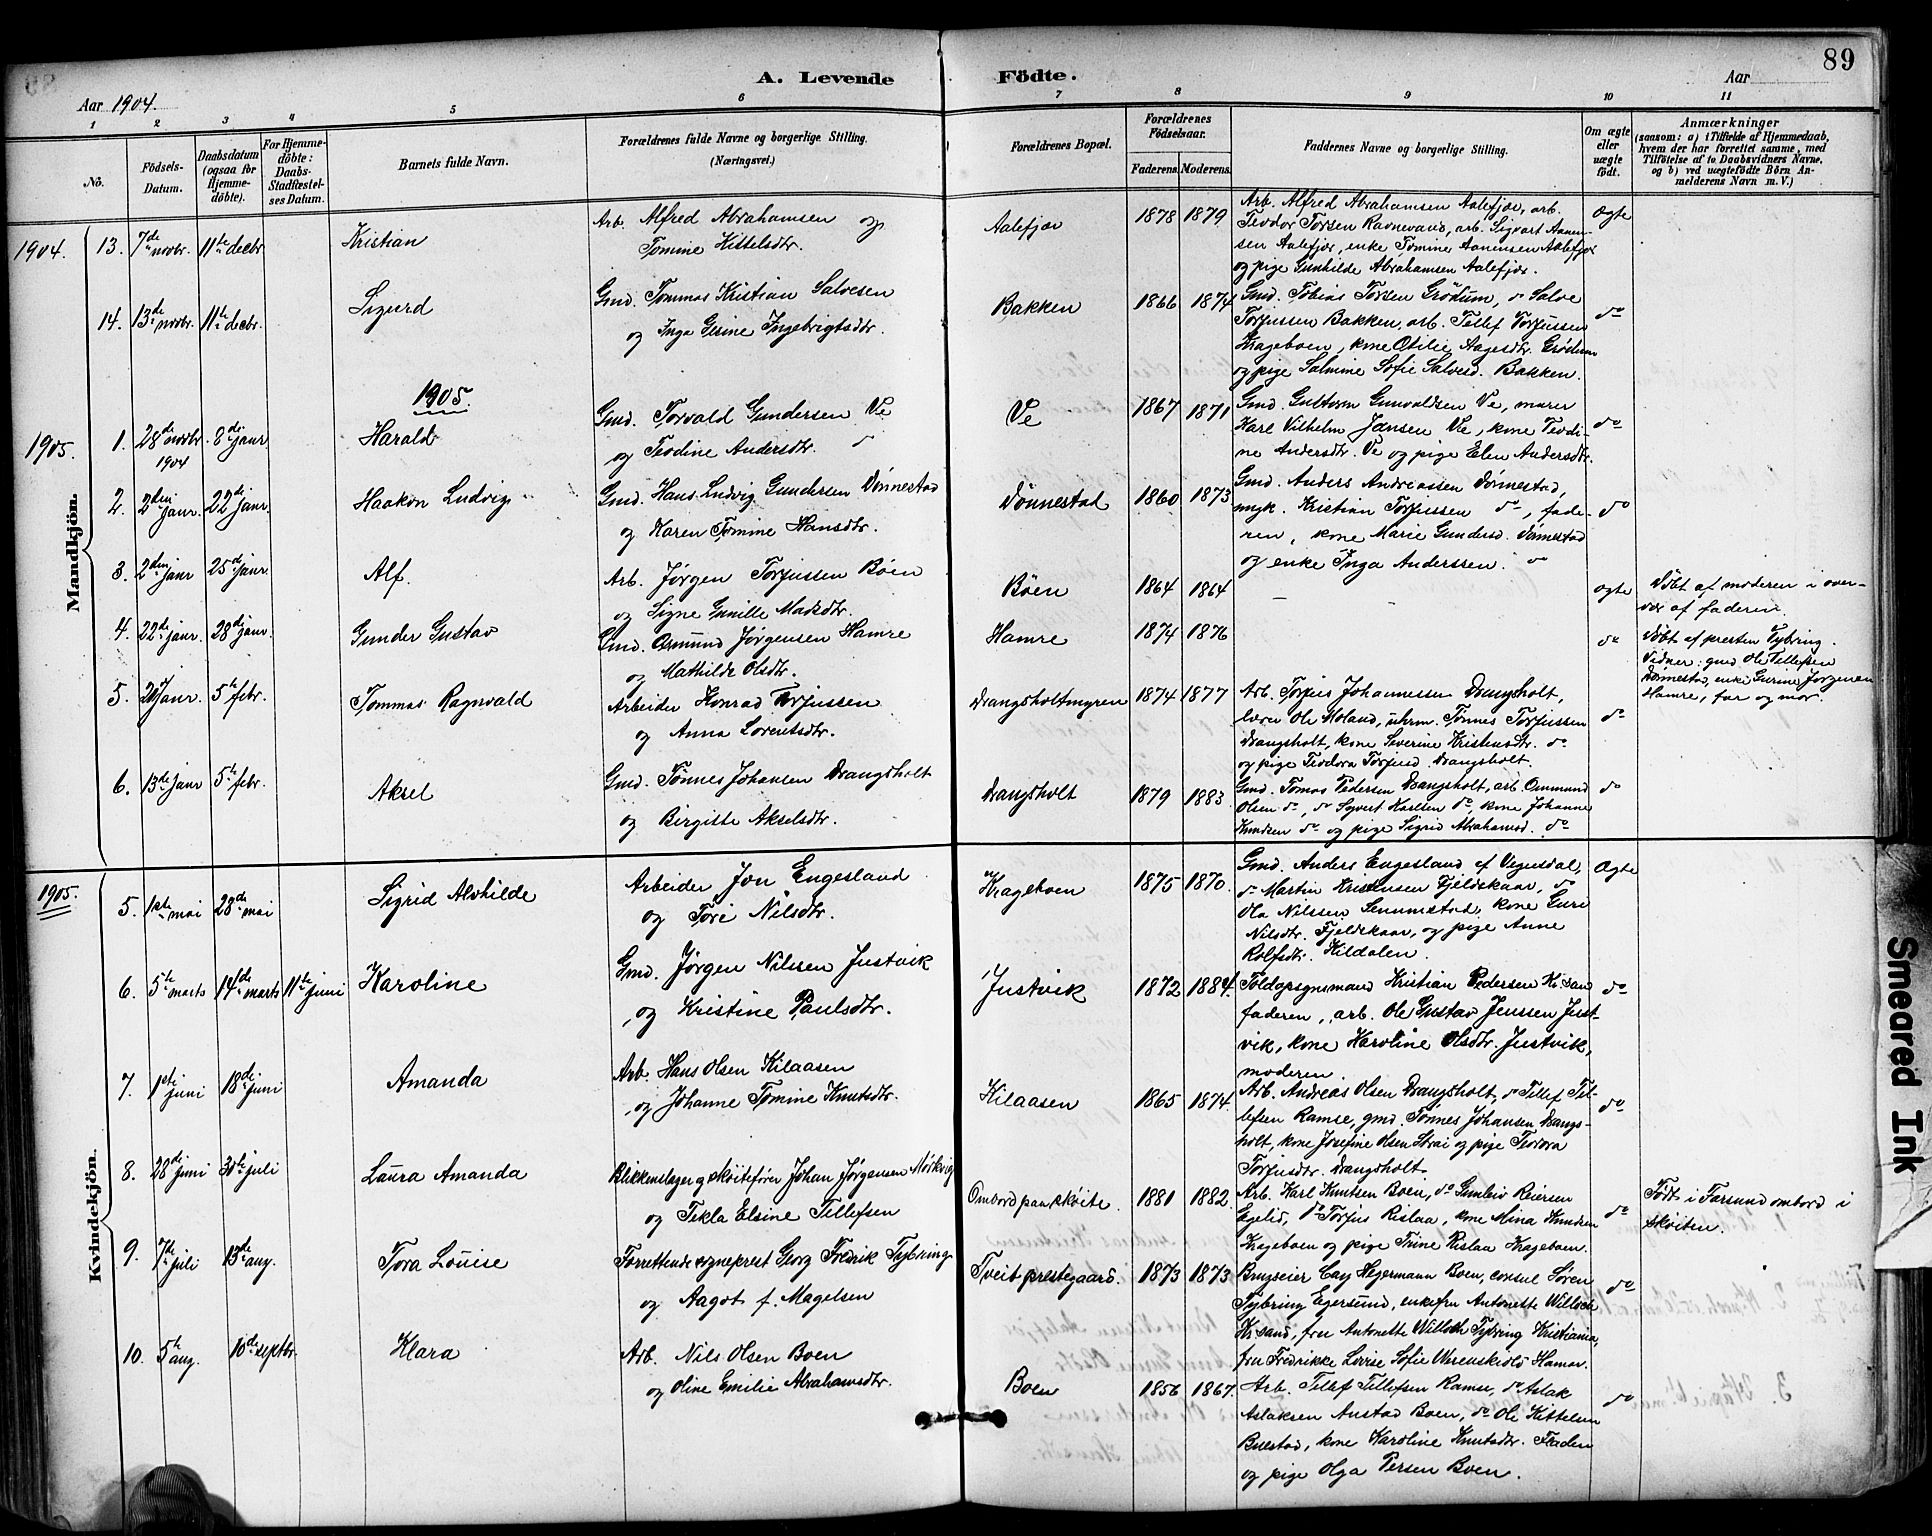 A. Levende Födte.
89
Aar 1904.
Aar
1 2 3 4 5 6 7 8 9 10 11
No.
Födsels-Datum.
Daabsdatum (ogsaa for Hjemme-döbte).
For Hjemme-döbte: Daabs-Stadfæstel-ses Datum.
Barnets fulde Navn.
Forældrenes fulde Navne og borgerlige Stilling. (Næringsvei.)
Forældrenes Bopæl.
Forældrenes Födselsaar.
Faderens. Moderens.
Faddernes Navne og borgerlige Stilling.
Om ægte eller uægte födt.
Anmærkninger
(saasom: a) i Tilfælde af Hjemmedaab, hvem der har forrettet samme, med Tilföielse af to Daabsvidners Navne, og b) ved uægtefödte Börn An-melderens Navn m. V.)
Mandkjön.
1904. 13. 7de novbr. 11te decbr. Kristian
Arb. Alfred Abrahamsen og
Tomine Kittelsdtr.
Aalefjær 1878 1879
Arb. Alfred Abrahamsen Aalefjær, arb.
Teodor Torsen Ravnevand, arb. Sigvart Aanen-
sen Aalefjær, enke Tomine Aanensen Aalefjær
og pige Gunhilde Abrahamsen Aalefjær.
Ægte
14. 13de novbr. 11te decbr. Sigurd
Gmd. Tommas Kristian Salvesen
og Inga Gesine Ingebrigtsdtr.
Bakken 1866 1874
Gmd. Tobias Torsen Grödum, do Salve
Torjussen Bakken, arb. Tellef Torjussen
Krageboen, kone Otilie Aagesdtr. Grödum
og pige Salmine Sofie Salvesd. Bakken.
do
1905.
1905. 1. 28de novbr. 1904 8de janr. Harald
Gmd. Torvald Gundersen Ve
og Teodine Andersdtr. do
Ve 1867 1871
Gmd. Guttorm Gunvaldsen Ve, murer
Karl Vilhelm Jansen Ve, kone Teodi-
ne Andersdtr. Ve og pige Elen Andersdtr.
do
2. 2den janr. 22de janr. Haakon Ludvig
Gmd. Hans Ludvig Gundersen Dønnestad
og Karen Tomine Hansdtr.
Dönnestad 1860 1873
Gmd. Anders Andreassen Dønnestad,
myk. Kristian Torjussen do, fade-
ren, kone Marie Gundersd. Dønnestad
og enke Inga Anderssen. do
do
3. 2den janr 25de janr. Alf.
Arb. Jørgen Torjussen Böen
og Signe Gunille Madsdtr.
Böen 1864 1864 — —
ægte
Döbt af moderen i over-
vær af faderen.
4. 22de janr. 28de janr. Gunder Gustav
Gmd. Osmund Jørgensen Hamre
og Mathilde Olsdtr.
Hamre 1874 1876
do
Döbt af presten Tybring.
Vidner: gmd Ole Tellefsen
Dønnestad, enke Gurine Jørgensen
Hamre, far og mor.
5. janr. 5te febr. Tommas Ragnvald
Arbeider Konrad Torjussen
og Anna Lorentsdtr.
Drangsholtmyren 1874 1877
Arb. Torjus Johannessen Drangsholt,
lærer Ole Moland, uhrm. Tønnes Torjussen
Drangsholt, kone Severine Kristensdtr. do
og pige Teodora Torjusd. Drangsholt.
do
6. 13de janr 5te febr. Aksel
Gmd. Tønnes Johansen Drangsholt
og Birgitte Akselsdtr.
Drangsholt 1879 1883
Gmd. Tomas Pedersen Drangsholt, arb. Ommund
Olsen do, do Syvert Karlsen do, kone Johanne
Knudsen do og pige Sigrid Abrahamsd. do
do
Kvindekjön.
1905. 5. 1ste mai 28de mai Sigrid Alvhilde
Arbeider Jon Engesland
og Tore Nilsdtr.
Krageboen 1875 1870.
Gmd. Anders Engesland af Vegusdal,
do Martin Kristensen Fjeldskaar, do
Ola Nilssen Senumstad, kone Guri
Nilsdtr. Fjeldskaar, og pige Anne
Rolfsdtr. Kildalen.
Ægte
6. 5te marts 14de marts 11te juni Karoline
Gmd. Jørgen Nilssen Justvik
og Kristine Paulsdtr.
Justvik 1872 1884.
Toldopsynsmand Kristian Pedersen Kr.sand
faderen, arb. Ole Gustav Jenssen Just-
vik, kone Karoline Olsdtr. Justvik,
moderen.
do
7. 1ste juni 18de juni Amanda
Arb. Hans Olsen Kilaasen
og Johanne Tomine Knutsdtr.
Kilaasen 1865 1874.
Arb. Andreas Olsen Drangsholt, do Tellef Tel-
lefsen Ramse, gmd Tønnes Johansen Drangs-
holt, kone Josefine Olsen Sørai og pige Teodora
Torjusdtr. Drangsholt.
do
8. 28de juni 30te juli Laura Amanda
Blikkenslager og skøitefører Johan Jørgensen Mørkvig
og Tekla Elsine Tellefsen
Ombord paa skøite. 1881 1882.
Arb. Karl Knutsen Boen, do Gunleiv Reiersen
Egelid, do Torjus Rislaa, kone Mina Knudsen
Krageboen og pige Trine Rislaa Krageboen.
do
Født i Farsund ombord i
skøiten.
9. 7de juli 13de aug. Tora Louise
Forrettende sogneprest Georg Fredrik Tybring
og Aagot f. Magelsen
Tveit prestegaard. 1873 1873
Brugseier Cay Hegermann Boen, consul Søren
Tybring Egersund, enkefru Antonette Willoch
Kr.sand, fru Antonette Willoch Tybring Kristiania,
fru Fredrikke Lovise Sofie Werenskiold Hamar.
do
10. 5te aug. 10de septbr. Klara
Arb. Nils Olsen Boen
og Oline Emilie Abrahamsdtr.
Boen 1856 1867.
Arb. Tellef Tellefsen Ramse, do Aslak
Aslaksen Austad Boen, do Ole Kittelsen
Buestad, kone Karoline Knutsdtr. Fladen
og pige Olga Persen Boen.
do
Smeared Ink